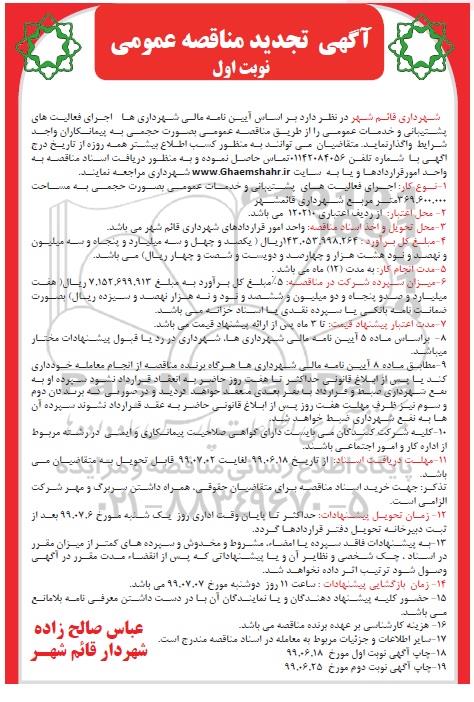 آگهی تجدید مناقصه عمومی
نوبت اول
شهرداری قائم شهر در نظر دارد بر اساس آیین نامه مالی شهرداری ها اجرای فعالیت های
پشتیبانی و خدمات عمومی را از طریق مناقصه عمومی بصورت حجمی به پیمانکاران واجد
شرایط واگذارنماید. متقاضیان می توانند به منظور کسب اطلاع بیشتر همه روزه از تاریخ درج
آگهی با شماره تلفن ۰۱۱۴۲۰۸۴۰۵۶ تماس حاصل نموده و به منظور دریافت اسناد مناقصه به
واحد امورقراردادها و یا به سایت www.Ghaemshahr.ir شهرداری مراجعه نمایند.
۱-نوع کار: اجرای فعالیت های پشتیبانی و خدمات عمومی بصورت حجمی به مساحت
۳۶۹.۶۰۰.۰۰۰ متر مربع شهرداری قائمشهر
۲- محل اعتبار: از ردیف اعتباری ۱۲۰۲۱۰ می باشد.
۳- محل تحویل و اخذ اسناد مناقصه: واحد امور قراردادهای شهرداری قائم شهر می باشد.
۴-مبلغ کل برآورد : ۱۴۳.۰۵۳.۹۹۸.۲۶۴ریال ( یکصد و چهل و سه میلیارد و پنجاه و سه میلیون
و نهصد و نود هشت هزار و چهارصد و دویست و شصت و چهار ریال) مـی باشـد.
۵-مدت انجام کار: به مدت (۱۲) ماه می باشد .
۶-میزان سپرده شرکت در مناقصه: ۵٪مبلغ کل برآورد به مبلغ ۷.۱۵۲.۶۹۹.۹۱۳ریال( هفت
میلیارد و صدو پنجاه و دو میلیون و ششصد و نود و نه هزار نهصد و سیزده ریال) بصورت
ضمانت نامه بانکی یا سپرده نقدی یا اسناد خزانه می باشد.
۷-مدت اعتبار پیشنهاد قیمت: تا ۳ ماه پس از ارائه پیشنهاد قیمت می باشد.
۸- براساس ماده ۵ آیین نامه مالی شهرداری ها، شهرداری در رد یا قبول پیشنهادات مختار
میباشد.
۹-مطابق ماده ۸ آیین نامه مالی شهرداری ها هرگاه برنده مناقصه از انجام معامله خودداری
کند یا پس از ابلاغ قانونی حداکثر تا هفت روز حاضر به انعقاد قرارداد نشود سپرده او به
نفع شهرداری ضبط و قرارداد با نفر بعدی منعقد خواهد گردید و در صورتی که برندگان دوم
و سوم نیز ظرف مهلت هفت روز پس از ابلاغ قانونی حاضر به عقد قرارداد نشوند سپرده آن
ها به نفع شهرداری ضبط خواهد شد.
۱۰-کلیه شرکت کنندگان می بایست دارای گواهی صلاحیت پیمانکاری و ایمنی در رشته مربوط
از اداره کار و امور اجتماعی باشند.
۱۱-مهلت دریافت اسناد: از تاریخ ۹۹.۰۶.۱۸ لغایت ۹۹.۰۷.۰۲ قابل تحویل به متقاضیان می
باشد.
تذکر: جهت خرید اسناد مناقصه برای متقاضیان حقوقی، همراه داشتن سربرگ و مهر شرکت
الزامی است.
۱۲- زمان تحویل پیشنهادات: حداکثر تا پایان وقت اداری روز یک شنبه مورخ ۹۹.۰۷.۶ بعد از
ثبت دبیرخانه تحویل دفتر قراردادها گردد.
۱۳-به پیشنهادات فاقد سپرده یا امضاء، مشروط و مخدوش و سپرده های کمتر از میزان مقرر
در اسناد ، چک شخصی و نظایر آن و یا پیشنهاداتی که پس از انقضاء مدت مقرر در آگهی
وصول شود ترتیب اثر داده نخواهد شد.
۱۴- زمان بازگشایی پیشنهادات : ساعت ۱۱ روز دوشنبه مورخ ۹۹.۰۷.۰۷ می باشد.
۱۵- حضور کلیه پیشنهاد دهندگان و یا نمایندگان آن با در دست داشتن معرفی نامه بلامانع
می باشد.
۱۶- هزینه کارشناسی بر عهده برنده مناقصه می باشد.
۱۷-سایر اطلاعات و جزئیات مربوط به معامله در اسناد مناقصه مندرج است.
۱۸-چاپ آگهی نوبت اول مورخ ۹۹.۰۶.۱۸
۱۹-چاپ آگهی نوبت دوم مورخ ۹۹.۰۶.۲۵
عباس صالح زاده
شهردار قائم شهر
پایگاه اطلاع رسانی مناقصه و مزایده
۰۲۱-۸۸۳۴۹۶۷۰-۵